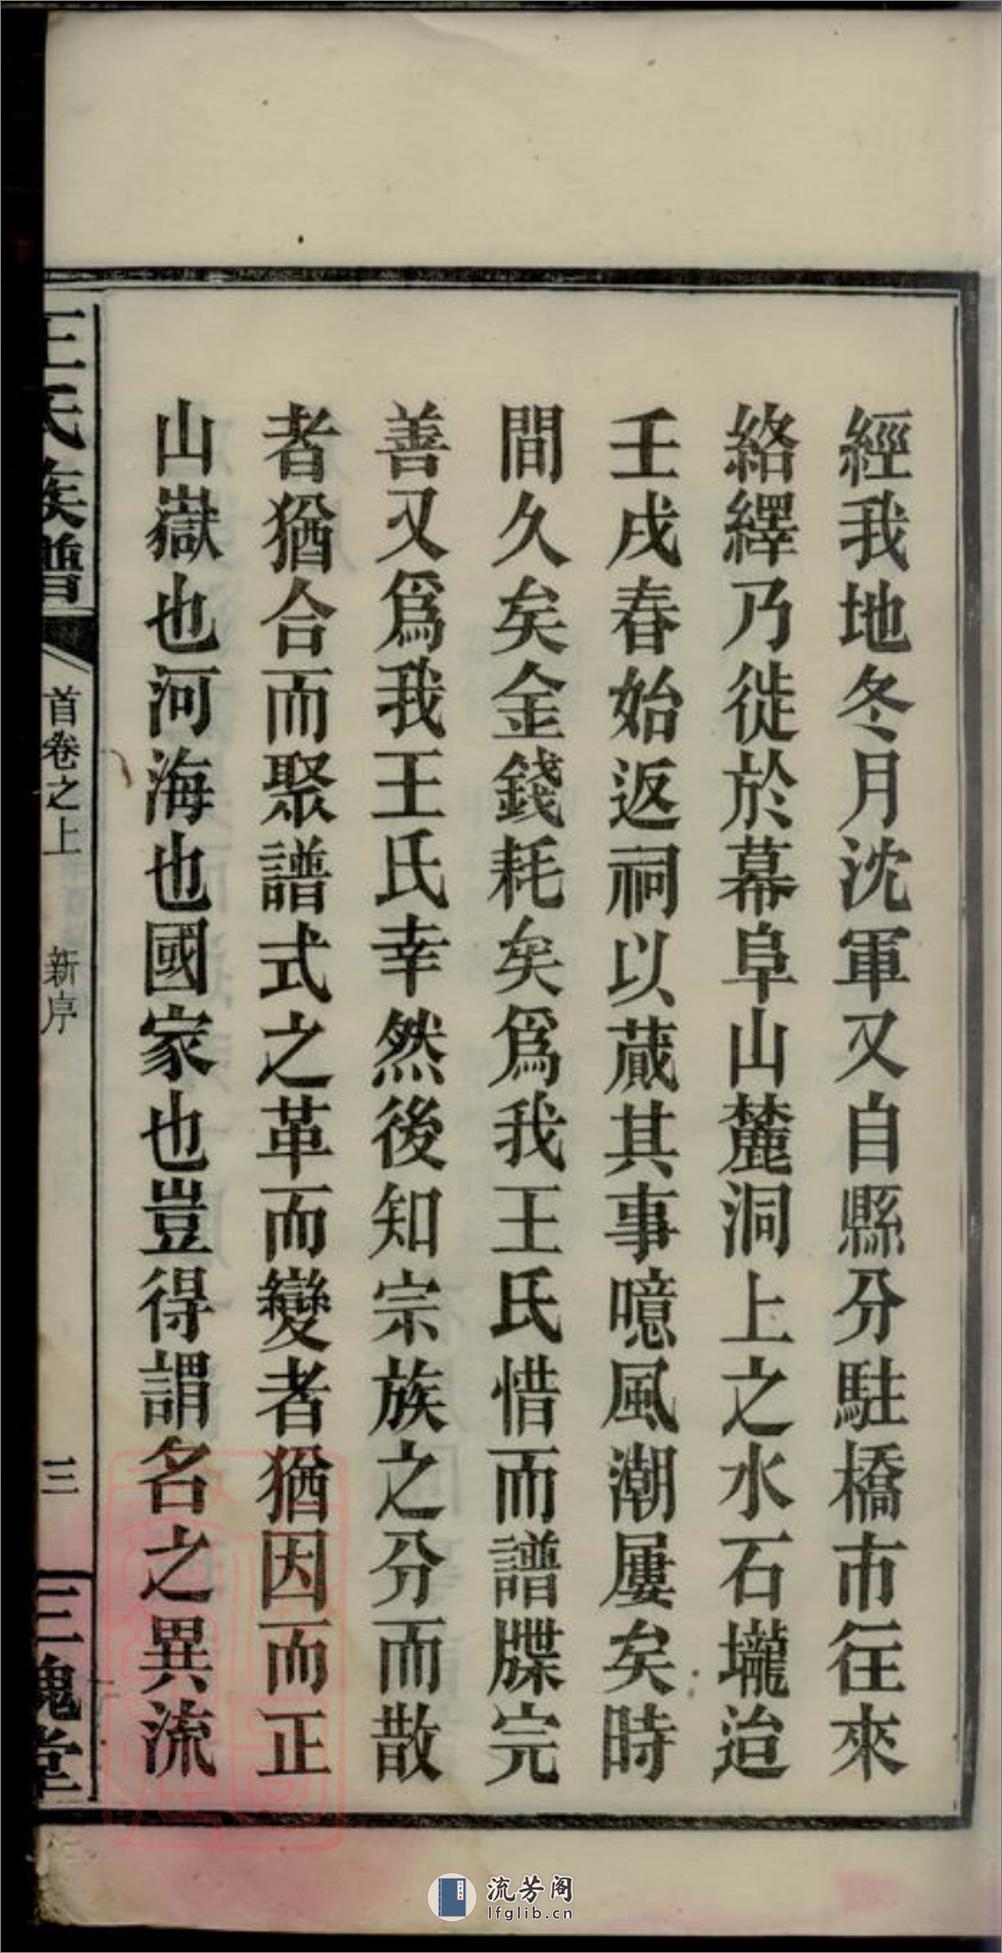 經我地冬月沈軍又自縣分駐橋市往來
絡繹乃徙於幕阜山麓洞上之水石壠迨
壬戌春始返祠以蕆其事噫風潮屢矣時
間久矣金錢耗矣爲我王氏惜而譜牒完
善又爲我王氏幸然後知宗族之分而散
者猶合而聚譜式之革而變者猶因而正
山嶽也河海也國家也豈得謂名之異流
王氏族譜 首卷之上 新序 三 三槐堂
流芳阁
lfglib.cn